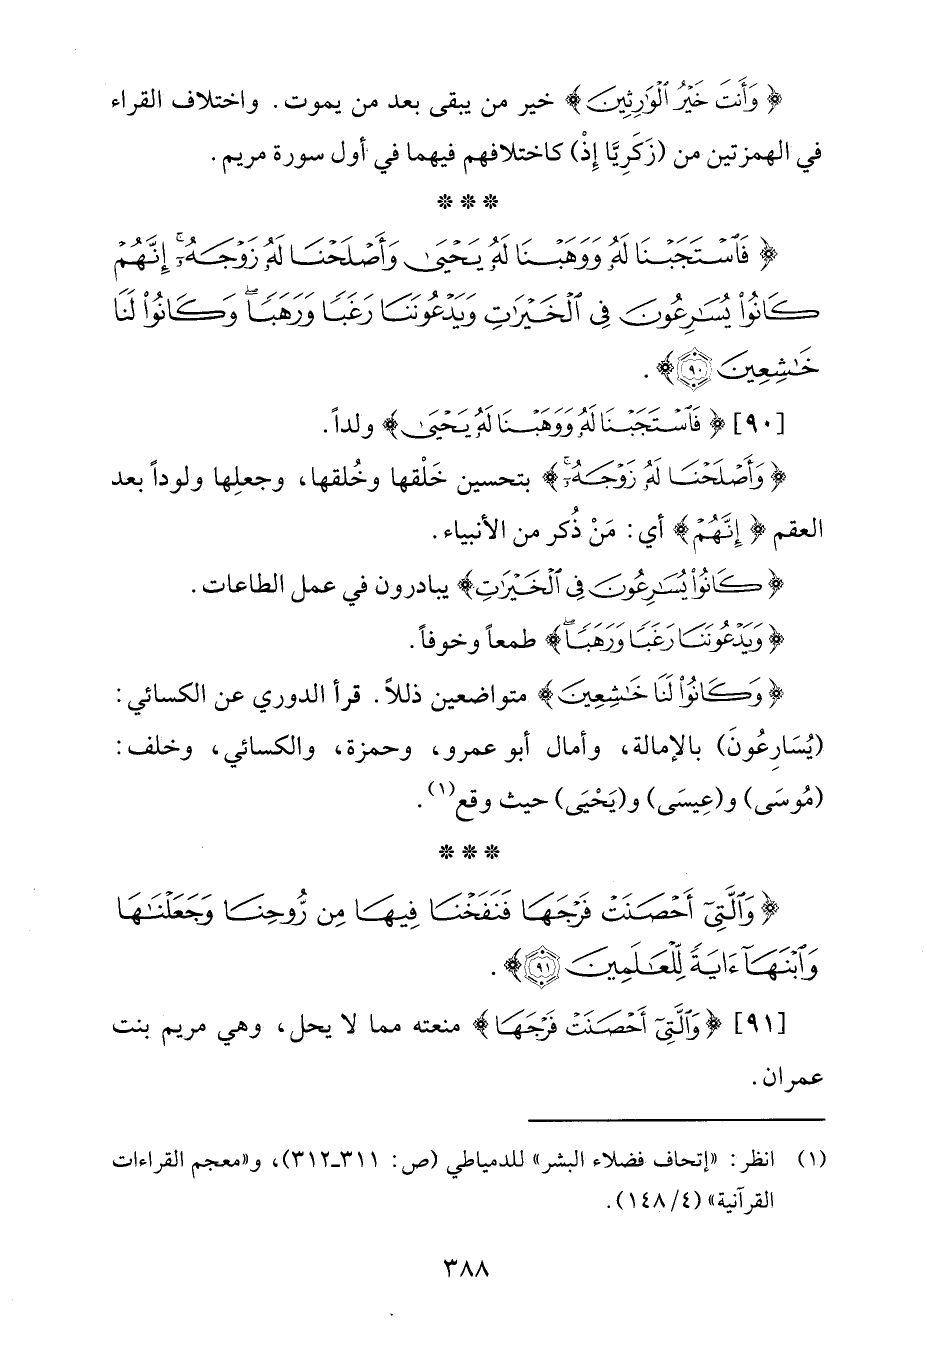 ﴿ وَأَنتَ خَيْرُ ٱلْوَٰرِثِينَ ﴾ خير من يبقى بعد من يموت. واختلاف القراء
في الهمزتين من (زَكَرِيَّا إِذْ) كاختلافهم فيهما في أول سورة مريم.
* * *
﴿ فَٱسْتَجَبْنَا لَهُۥ وَوَهَبْنَا لَهُۥ يَحْيَىٰ وَأَصْلَحْنَا لَهُۥ زَوْجَهُۥٓ ۚ إِنَّهُمْ
كَانُوا۟ يُسَٰرِعُونَ فِى ٱلْخَيْرَٰتِ وَيَدْعُونَنَا رَغَبًا وَرَهَبًا ۖ وَكَانُوا۟ لَنَا
خَٰشِعِينَ ٩٠ ﴾.
[٩٠] ﴿ فَٱسْتَجَبْنَا لَهُۥ وَوَهَبْنَا لَهُۥ يَحْيَىٰ ﴾ ولداً.
﴿ وَأَصْلَحْنَا لَهُۥ زَوْجَهُۥٓ ۚ ﴾ بتحسين خَلْقها وخُلقها، وجعلِها ولوداً بعد
العقم ﴿ إِنَّهُمْ ﴾ أي: مَنْ ذُكر من الأنبياء.
﴿ كَانُوا۟ يُسَٰرِعُونَ فِى ٱلْخَيْرَٰتِ ﴾ يبادرون في عمل الطاعات.
﴿ وَيَدْعُونَنَا رَغَبًا وَرَهَبًا ۖ ﴾ طمعاً وخوفاً.
﴿ وَكَانُوا۟ لَنَا خَٰشِعِينَ ﴾ متواضعين ذللاً. قرأ الدوري عن الكسائي:
(يُسَارِعُونَ) بالإمالة، وأمال أبو عمرو، وحمزة، والكسائي، وخلف:
(مُوسَى) و(عِيسَى) و(يَحْيَى) حيث وقع(١).
* * *
﴿ وَٱلَّتِىٓ أَحْصَنَتْ فَرْجَهَا فَنَفَخْنَا فِيهَا مِن رُّوحِنَا وَجَعَلْنَٰهَا
وَٱبْنَهَآ ءَايَةً لِّلْعَٰلَمِينَ ٩١ ﴾.
[٩١] ﴿ وَٱلَّتِىٓ أَحْصَنَتْ فَرْجَهَا ﴾ منعته مما لا يحل، وهي مريم بنت
عمران.
(١) انظر: «إتحاف فضلاء البشر» للدمياطي (ص: ٣١١ـ٣١٢)، و«معجم القراءات
القرآنية» (٤/ ١٤٨).
٣٨٨